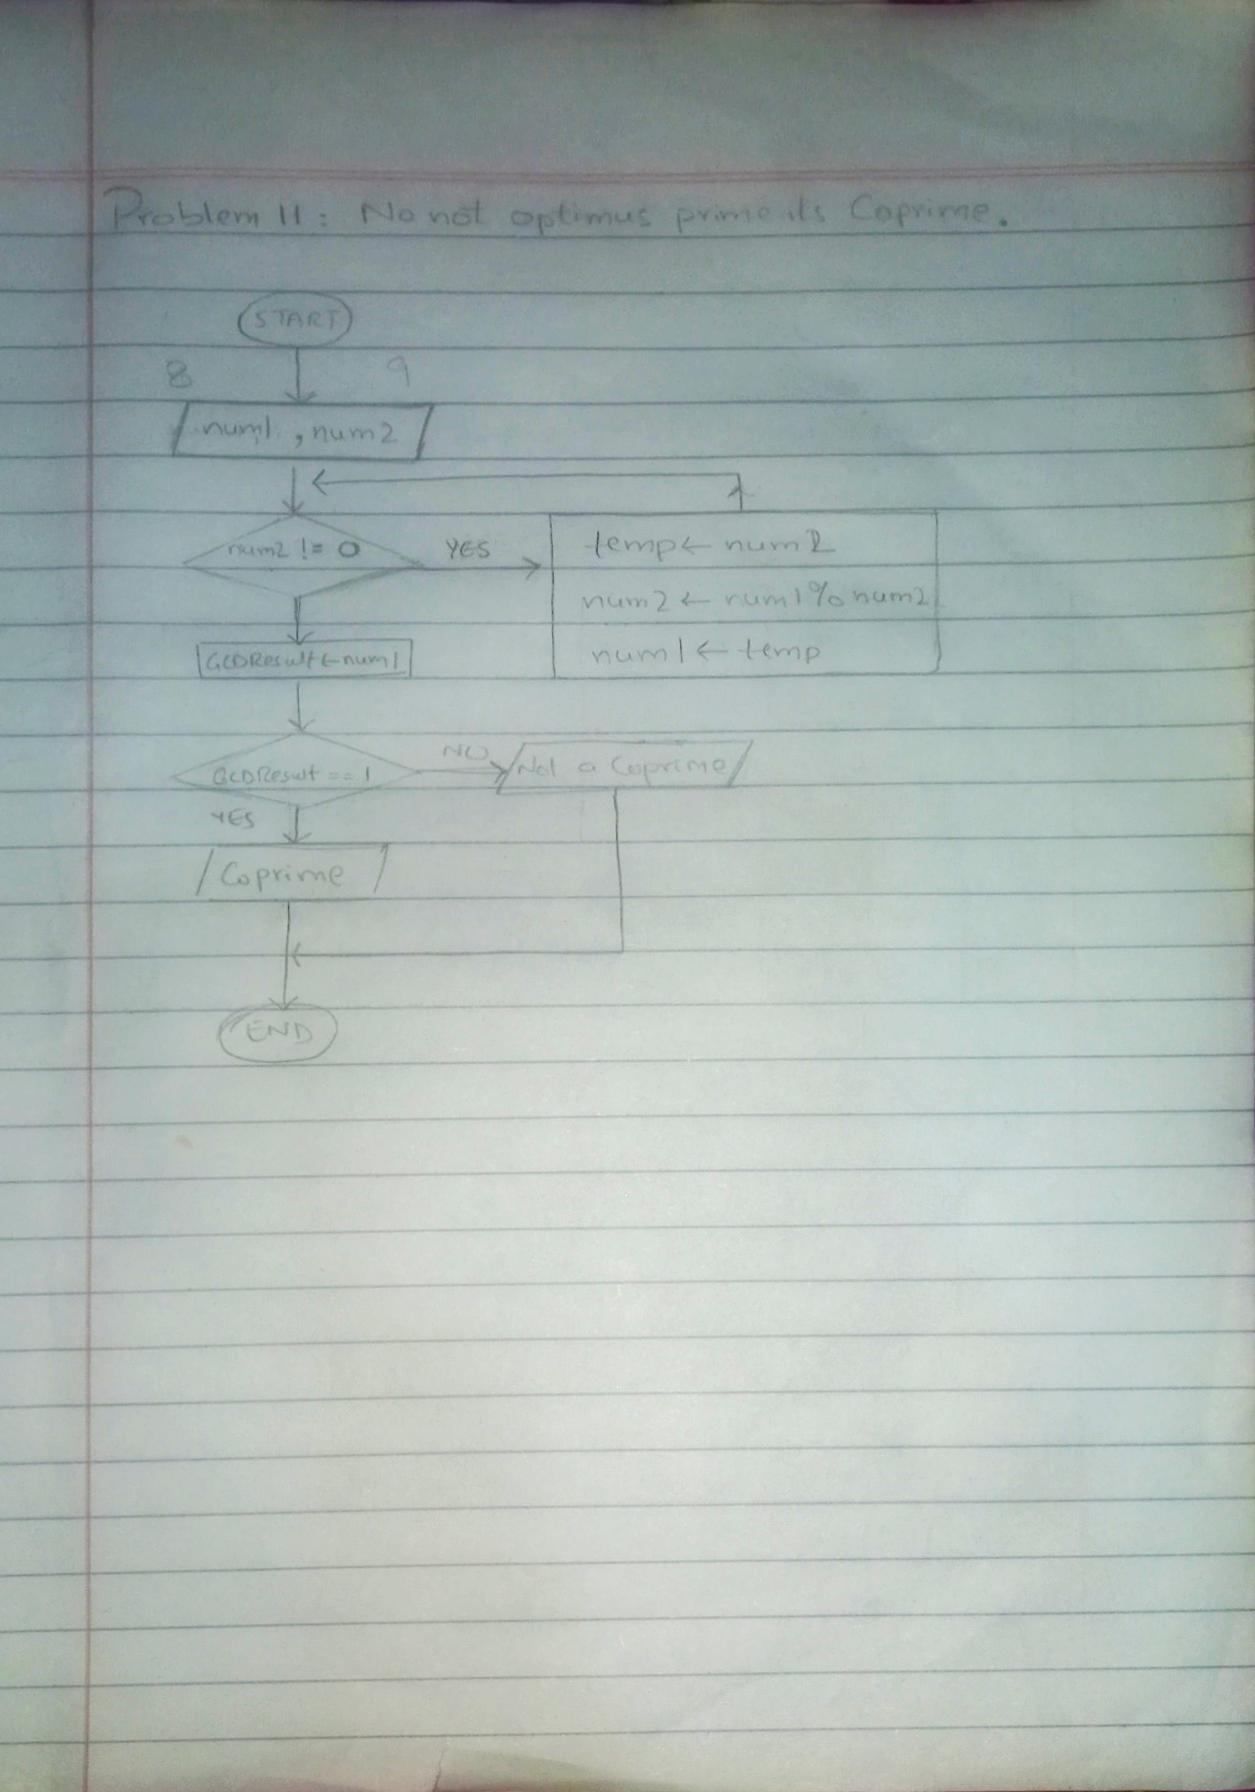 Problem 11: No not optimus prime its Coprime.
START
8 9
num1 , num2
num2 != 0
YES
temp ← num2
num2 ← num1 % num2
num1 ← temp
GCDResult ← num1
GCDResult == 1
NO
Not a Coprime
YES
Coprime
END